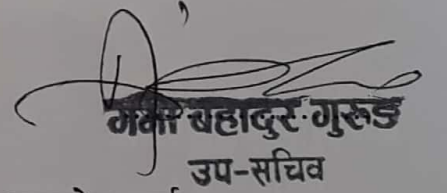 बहादुर गुरुङ
उप-सचिव